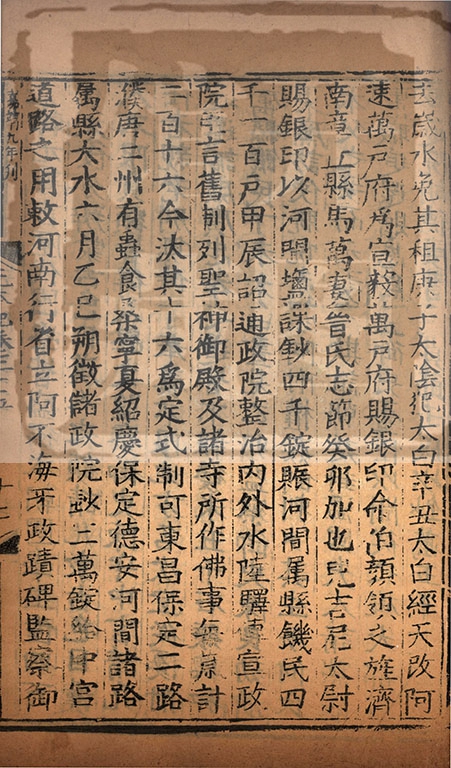 去歲水免其租庚子太陰犯太白辛丑太白經天改阿
速萬戶府爲宣毅萬戶府賜銀印命伯顏領之旌濟
南章丘縣馬萬妻晉氏志節癸卯加也兒吉尼太尉
賜銀印以河間鹽課鈔四千錠賑河間屬縣饑民四
千一百戶甲辰詔通政院整治內外水陸驛傳宣政
院臣言舊制列聖神御殿及諸寺所作佛事每歲計
二百十六今汰其十六爲定式制可東昌保定二路
濮唐二州有蟲食桒寧夏紹慶保定德安河間諸路
屬縣大水六月乙巳朔徵諸政院鈔二萬錠給中宮
道路之用敕河南行省立阿不海牙政蹟碑監察御
嘉靖九年刊